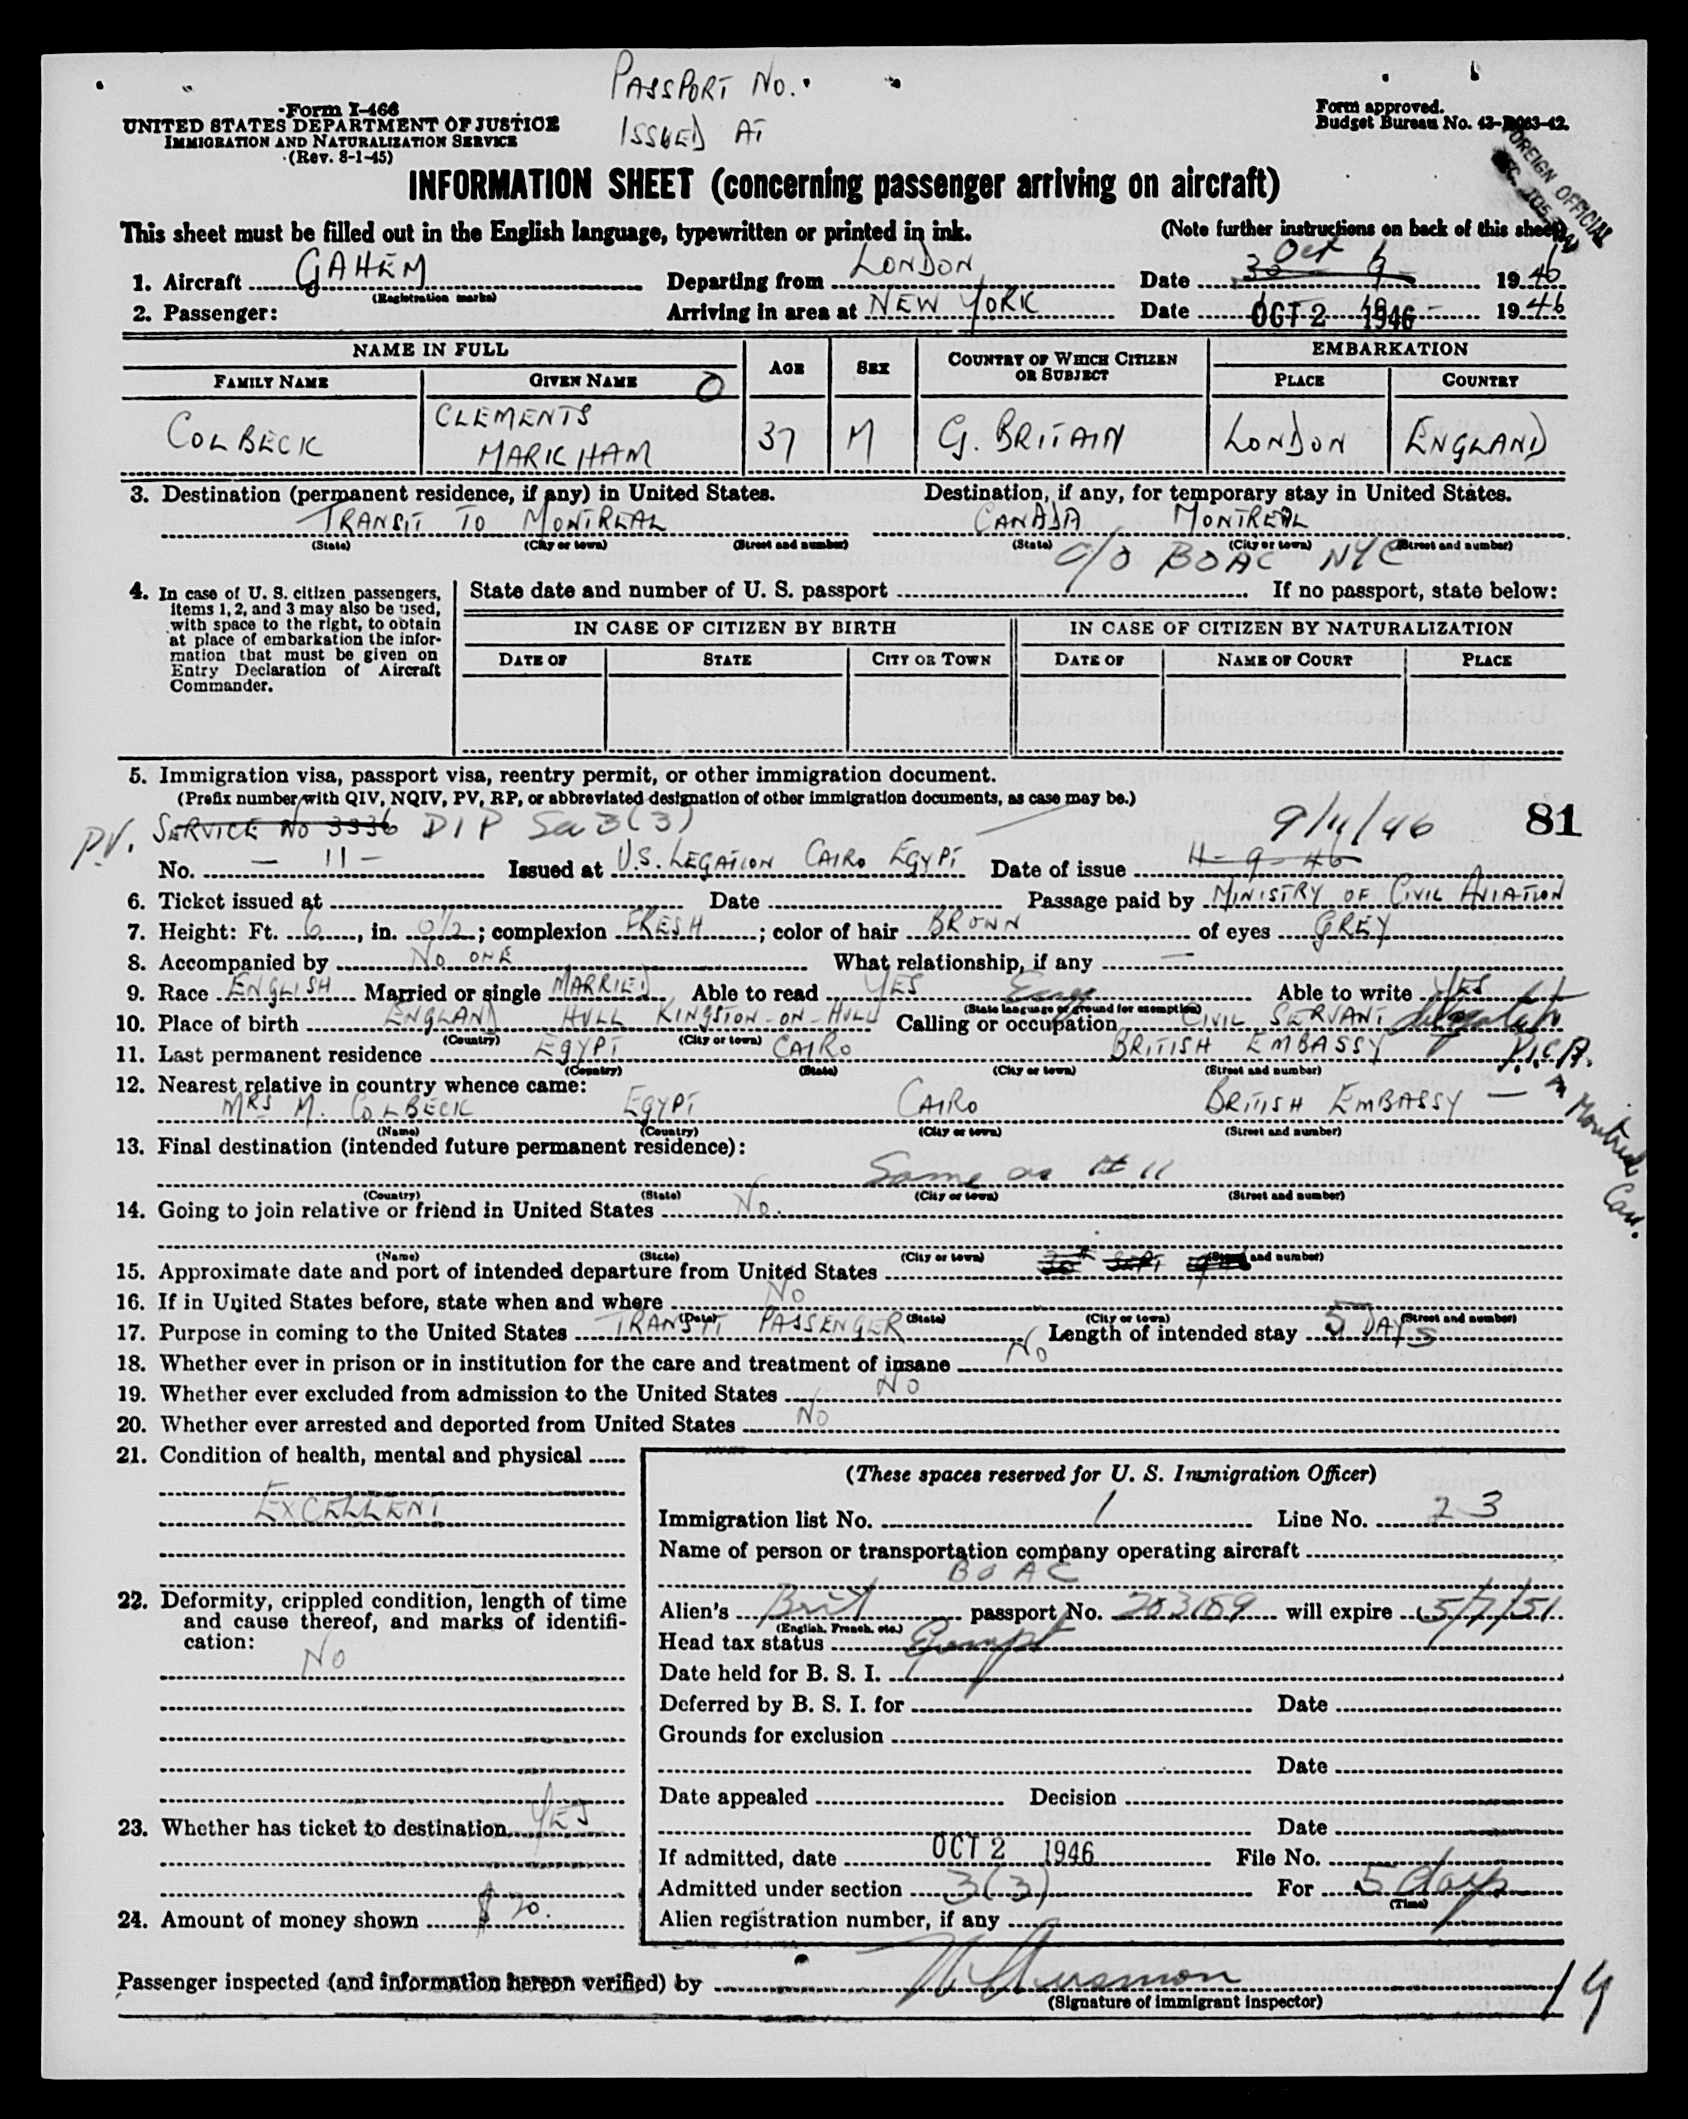 PASSPORT NO.
ISSUED AT
Form I-466
UNITED STATES DEPARTMENT OF JUSTICE
IMMIGRATION AND NATURALIZATION SERVICE
(Rev. 8-1-45)
Form approved.
Budget Bureau No. 43-R063-42.
FOREIGN OFFICIAL
INFORMATION SHEET (concerning passenger arriving on aircraft)
This sheet must be filled out in the English language, typewritten or printed in ink. (Note further instructions on back of this sheet)
1. Aircraft GAHEM Departing from LONDON Date Oct 1946
(Registration marks)
2. Passenger: Arriving in area at NEW YORK Date OCT 2 1946 1946
NAME IN FULL AGE SEX COUNTRY OF WHICH CITIZEN OR SUBJECT EMBARKATION
FAMILY NAME GIVEN NAME PLACE COUNTRY
COLBECK CLEMENTS MARKHAM 37 M G. BRITAIN LONDON ENGLAND
3. Destination (permanent residence, if any) in United States. Destination, if any, for temporary stay in United States.
TRANSIT TO MONTREAL CANADA MONTREAL
(State) (City or town) (Street and number) (State) (City or town) (Street and number)
C/O BOAC NYC
4. In case of U. S. citizen passengers, items 1, 2, and 3 may also be used, with space to the right, to obtain at place of embarkation the information that must be given on Entry Declaration of Aircraft Commander.
State date and number of U. S. passport If no passport, state below:
IN CASE OF CITIZEN BY BIRTH IN CASE OF CITIZEN BY NATURALIZATION
DATE OF STATE CITY OR TOWN DATE OF NAME OF COURT PLACE
5. Immigration visa, passport visa, reentry permit, or other immigration document.
(Prefix number with QIV, NQIV, PV, RP, or abbreviated designation of other immigration documents, as case may be.)
P.V. SERVICE NO 3336 DIP Sec 3(3) 9/11/46 81
No. - 11 - Issued at U.S. LEGATION CAIRO EGYPT Date of issue 11-9-46
6. Ticket issued at Date Passage paid by MINISTRY OF CIVIL AVIATION
7. Height: Ft. 6, in. 0½; complexion FRESH; color of hair BROWN of eyes GREY
8. Accompanied by NO ONE What relationship, if any —
9. Race ENGLISH Married or single MARRIED Able to read YES Eng Able to write YES
(State language or ground for exemption)
10. Place of birth ENGLAND HULL KINGSTON-ON-HULL Calling or occupation CIVIL SERVANT delegate to
(Country) (City or town)
11. Last permanent residence EGYPT CAIRO BRITISH EMBASSY P.I.C.A.
(Country) (State) (City or town) (Street and number)
in Montreal Can.
12. Nearest relative in country whence came:
MRS M. COLBECK EGYPT CAIRO BRITISH EMBASSY —
(Name) (Country) (City or town) (Street and number)
13. Final destination (intended future permanent residence):
Same as # 11
(Country) (State) (City or town) (Street and number)
14. Going to join relative or friend in United States NO.
(Name) (State) (City or town) (Street and number)
15. Approximate date and port of intended departure from United States
16. If in United States before, state when and where NO
(Date) (State) (City or town) (Street and number)
17. Purpose in coming to the United States TRANSIT PASSENGER Length of intended stay 5 DAYS
18. Whether ever in prison or in institution for the care and treatment of insane NO
19. Whether ever excluded from admission to the United States NO
20. Whether ever arrested and deported from United States NO
21. Condition of health, mental and physical
EXCELLENT
22. Deformity, crippled condition, length of time and cause thereof, and marks of identification:
NO
23. Whether has ticket to destination YES
24. Amount of money shown $20.
(These spaces reserved for U. S. Immigration Officer)
Immigration list No. 1 Line No. 23
Name of person or transportation company operating aircraft
BOAC
Alien's Brit passport No. 203159 will expire 5/7/51
(English, French, etc.)
Head tax status Exempt
Date held for B. S. I.
Deferred by B. S. I. for Date
Grounds for exclusion
Date
Date appealed Decision
Date
If admitted, date OCT 2 1946 File No.
Admitted under section 3(3) For 5 days
(Time)
Alien registration number, if any
Passenger inspected (and information hereon verified) by
(Signature of immigrant inspector)